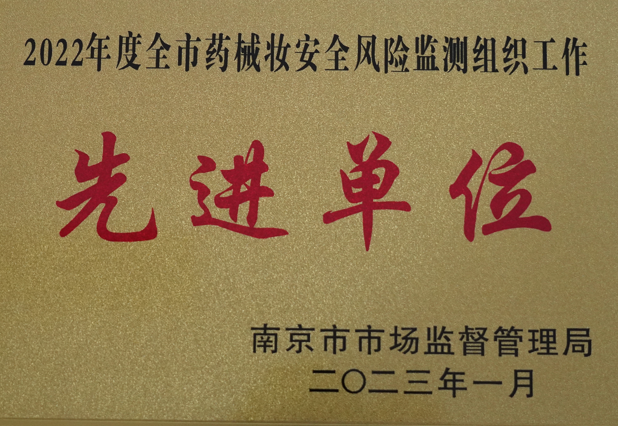 2022年度全市药械妆安全风险监测组织工作
先进单位
南京市市场监督管理局
二〇二三年一月